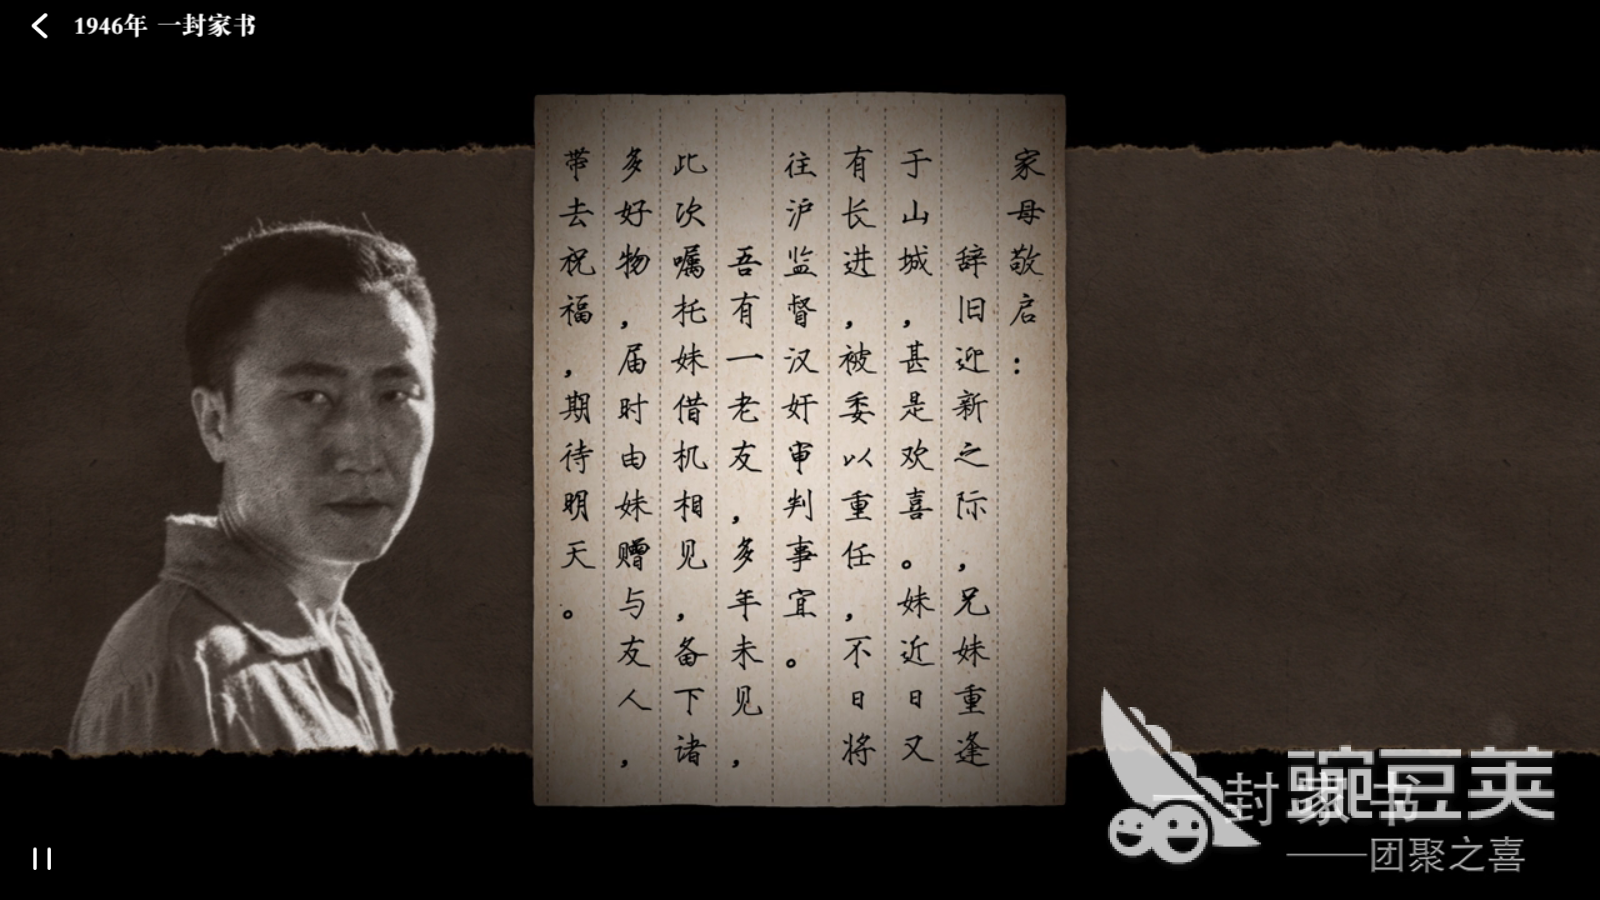 1946年 一封家书
家母敬启：
辞旧迎新之际，兄妹重逢
于山城，甚是欢喜。妹近日又
有长进，被委以重任，不日将
往沪监督汉奸审判事宜。
吾有一老友，多年未见，
此次嘱托妹借机相见，备下诸
多好物，届时由妹赠与友人，
带去祝福，期待明天。
一封家书
——团聚之喜
豌豆荚